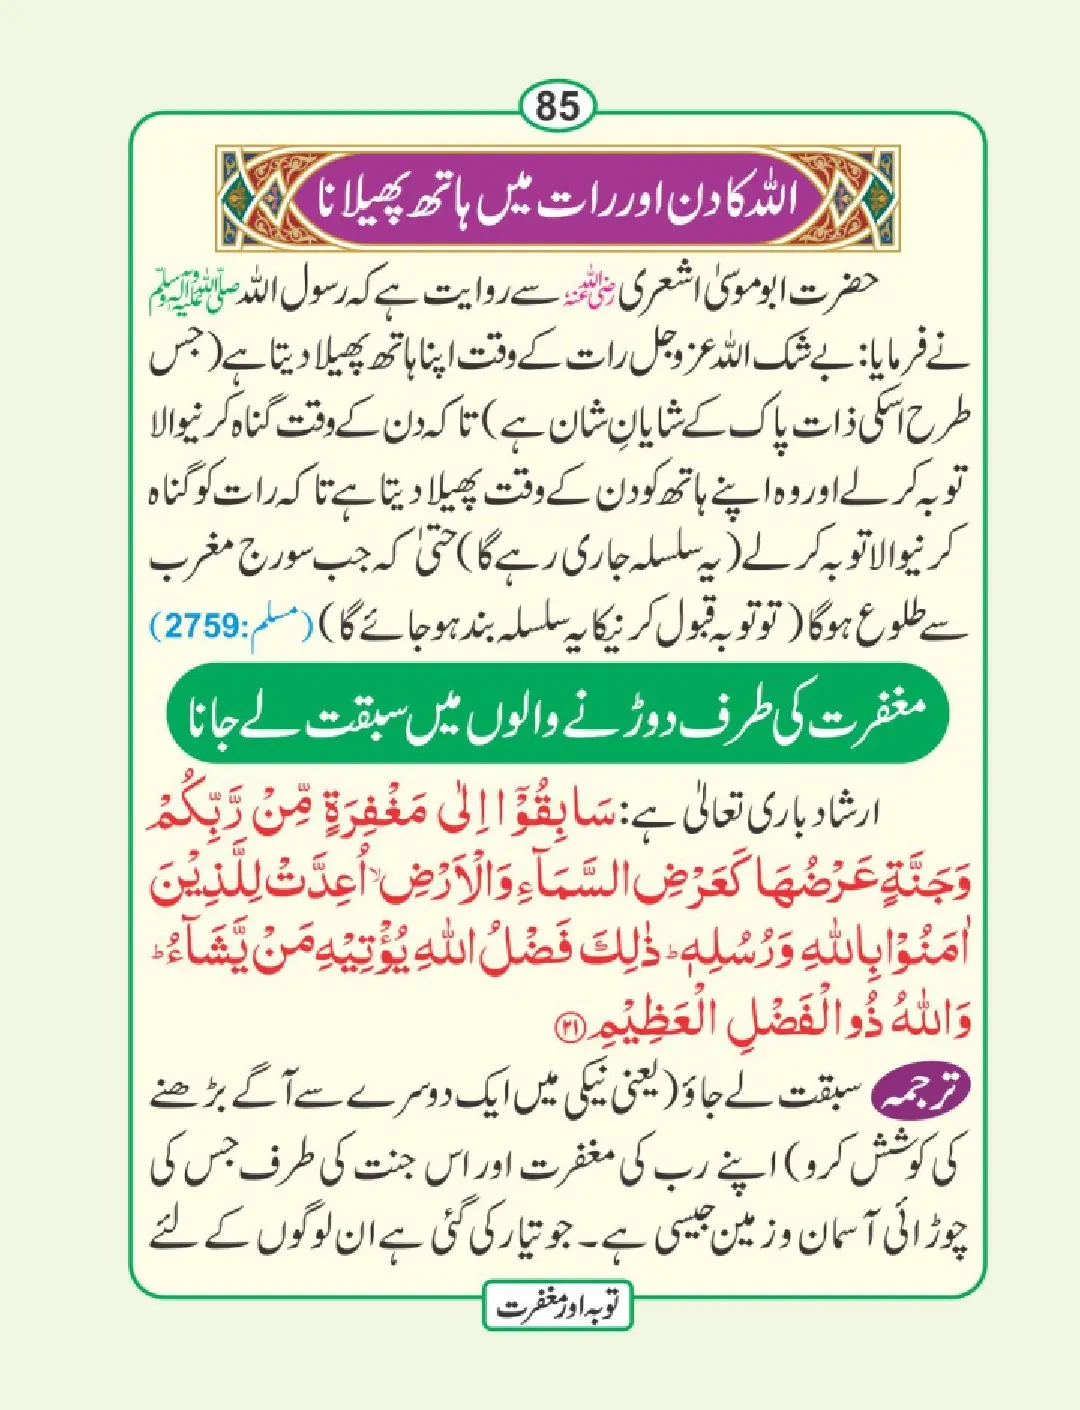 85
اللہ کا دن اور رات میں ہاتھ پھیلانا
حضرت ابوموسیٰ اشعری رضی اللہ عنہ سے روایت ہے کہ رسول اللہ صلی اللہ علیہ وآلہ وسلم
نے فرمایا: بے شک اللہ عزوجل رات کے وقت اپنا ہاتھ پھیلا دیتا ہے (جس
طرح اسکی ذات پاک کے شایانِ شان ہے) تاکہ دن کے وقت گناہ کرنیوالا
توبہ کرلے اور وہ اپنے ہاتھ کو دن کے وقت پھیلا دیتا ہے تاکہ رات کو گناہ
کرنیوالا توبہ کرلے (یہ سلسلہ جاری رہے گا) حتیٰ کہ جب سورج مغرب
سے طلوع ہوگا (تو توبہ قبول کرنیکا یہ سلسلہ بند ہو جائے گا) (مسلم:2759)
مغفرت کی طرف دوڑنے والوں میں سبقت لے جانا
ارشاد باری تعالیٰ ہے: سَابِقُوْۤا اِلٰى مَغْفِرَةٍ مِّنْ رَّبِّكُمْ
وَجَنَّةٍ عَرْضُهَا كَعَرْضِ السَّمَآءِ وَالْاَرْضِ ۙ اُعِدَّتْ لِلَّذِيْنَ
اٰمَنُوْا بِاللّٰهِ وَرُسُلِهٖ ؕ ذٰلِكَ فَضْلُ اللّٰهِ يُؤْتِيْهِ مَنْ يَّشَآءُ ؕ
وَاللّٰهُ ذُو الْفَضْلِ الْعَظِيْمِ ۝۲۱
ترجمہ سبقت لے جاؤ (یعنی نیکی میں ایک دوسرے سے آگے بڑھنے
کی کوشش کرو) اپنے رب کی مغفرت اور اس جنت کی طرف جس کی
چوڑائی آسمان و زمین جیسی ہے۔ جو تیار کی گئی ہے ان لوگوں کے لئے
توبہ اور مغفرت